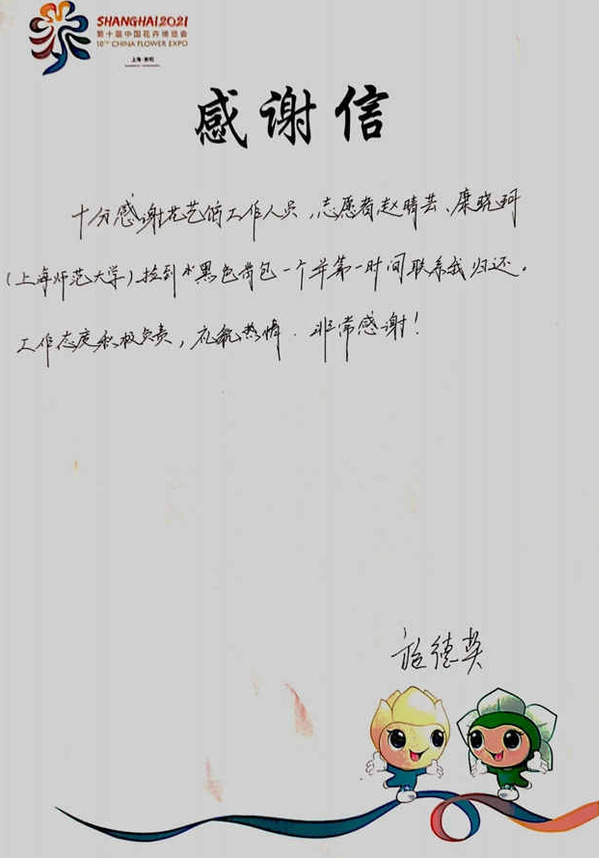 SHANGHAI 2021
第十届中国花卉博览会
10TH CHINA FLOWER EXPO
上海·崇明
感谢信
十分感谢花艺馆工作人员,志愿者赵晴芸、糜晓珂
(上海师范大学)捡到小黑色背包一个并第一时间联系我归还。
工作态度积极负责,礼貌热情.非常感谢!
德英